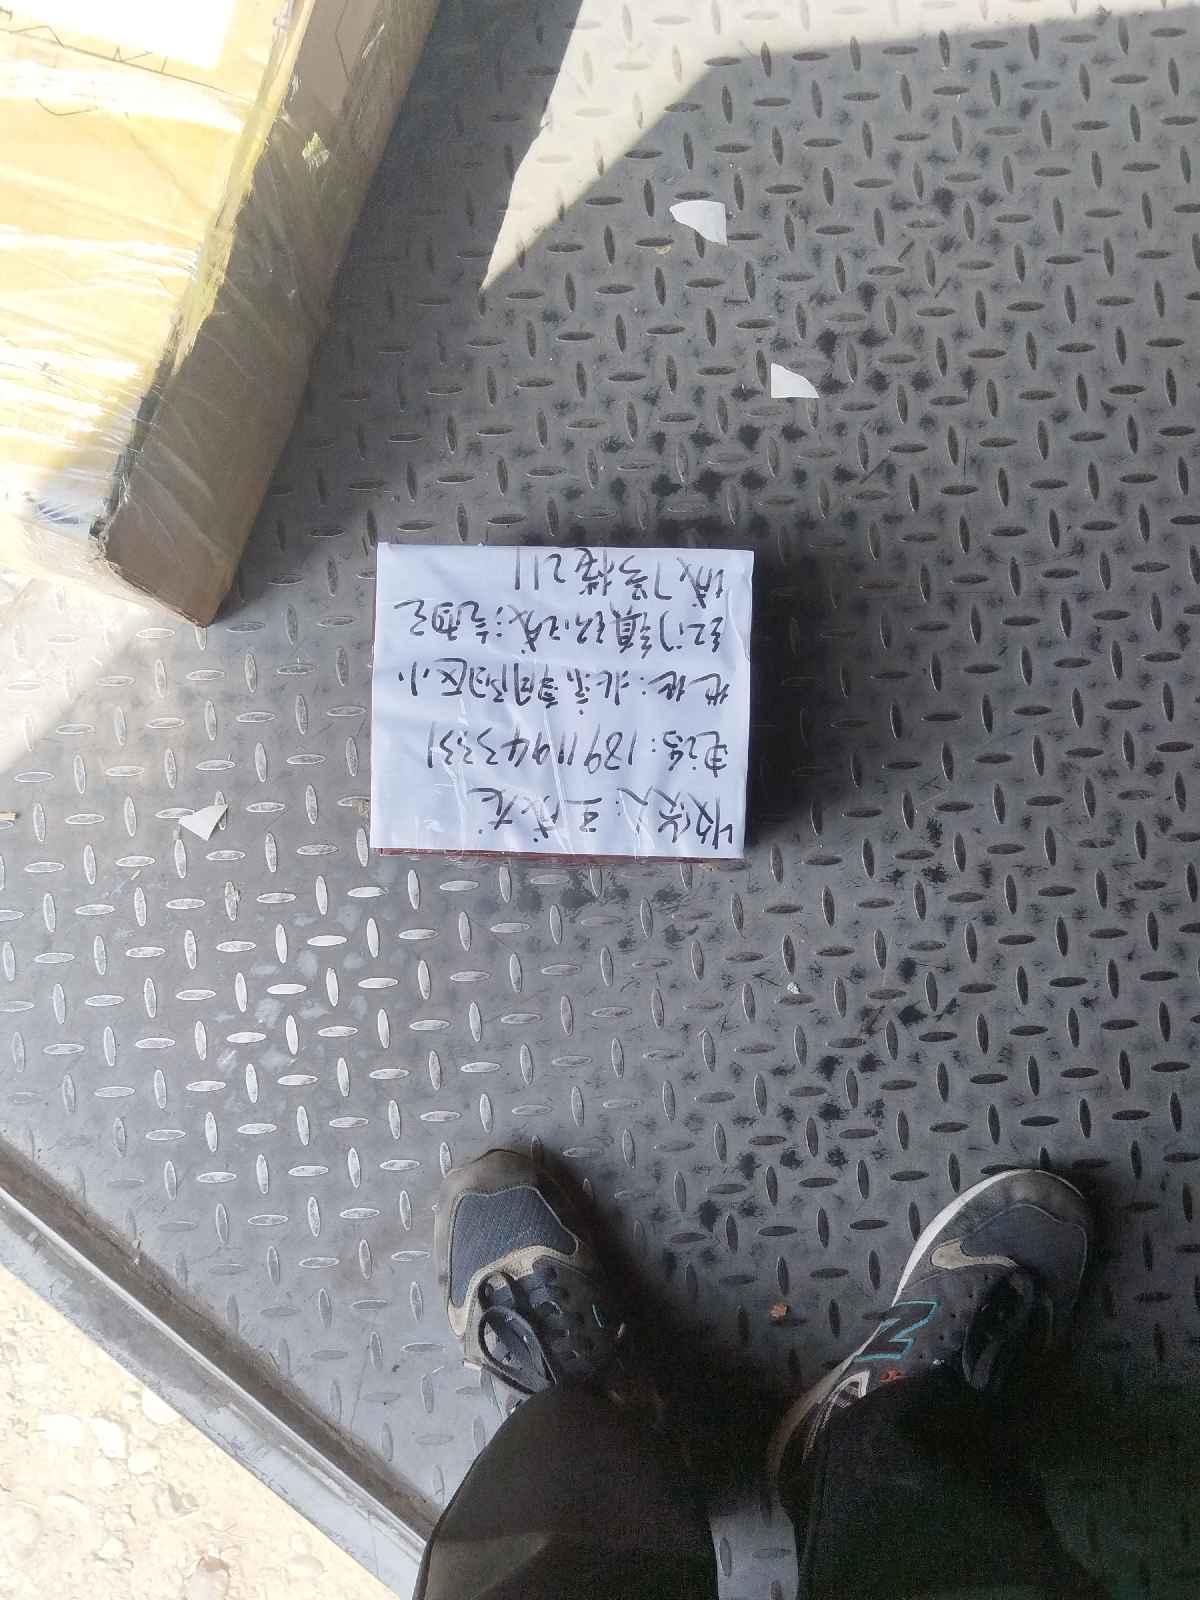 收货人:王成龙
电话:18911943331
地址:北京朝阳区小
红门镇
城7号楼211